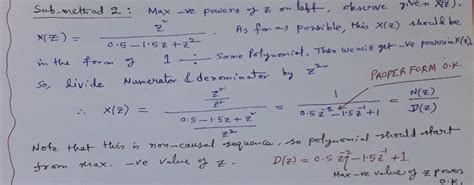 Sub-method 2: Max -ve powers of z on left, observe given X(z).
X(z) = z² / (0.5 - 1.5z + z²). As far as possible, this X(z) should be
in the form of 1 ÷ some Polynomial. Then we will get -ve power in X(z).
So, divide Numerator & denominator by z²
PROPER FORM O.K.
∴ X(z) = (z²/z²) / ((0.5 - 1.5z + z²)/z²) = 1 / (0.5z⁻² - 1.5z⁻¹ + 1) = N(z)/D(z)
Note that this is non-causal sequence, so polynomial should start
from max. -ve value of z. D(z) = 0.5z⁻² - 1.5z⁻¹ + 1
Max -ve value of z power
O.K.